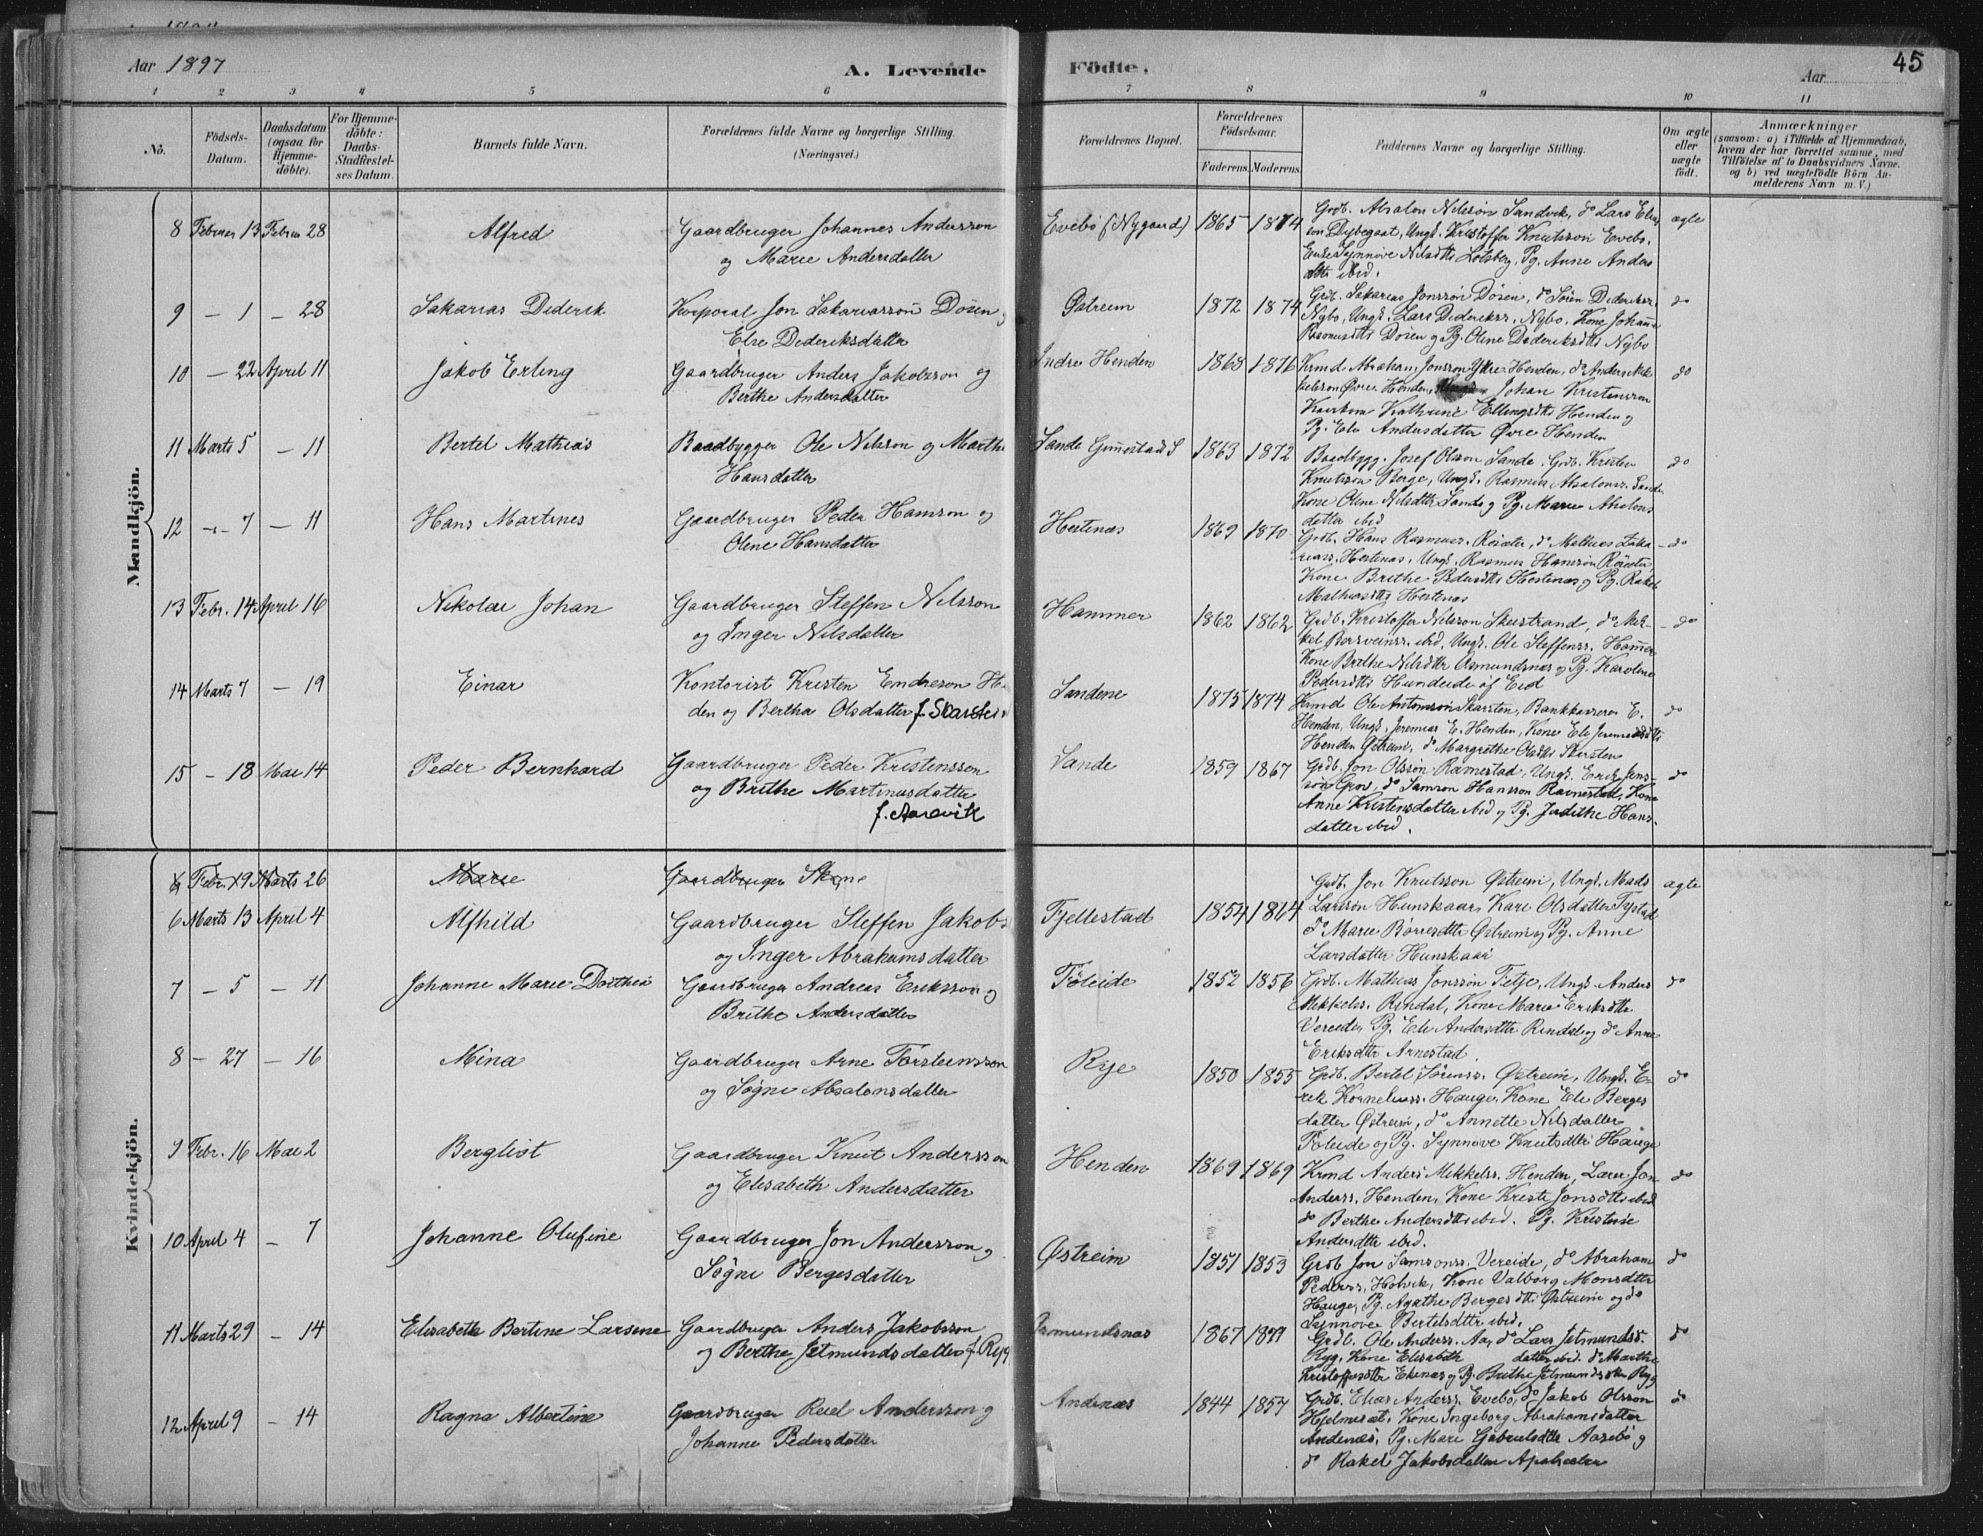 Aar 1897
A. Levende
Födte.
Aar
45
1 2 3 4 5 6 7 8 9 10 11
No.
Födsels-
Datum.
Daabsdatum
(ogsaa for
Hjemme-
döbte).
For Hjemme-
döbte:
Daabs-
Stadfæstel-
ses Datum.
Barnets fulde Navn.
Forældrenes fulde Navne og borgerlige Stilling.
(Næringsvei.)
Forældrenes Bopæl.
Forældrenes
Födselsaar.
Faderens. Moderens.
Faddernes Navne og borgerlige Stilling.
Om ægte
eller
uægte
födt.
Anmærkninger
(saasom: a) i Tilfælde af Hjemmedaab,
hvem der har forrettet samme, med
Tilföielse af to Daabsvidners Navne,
og b) ved uægtefödte Börn An-
melderens Navn m. V.)
Mandkjön.
8 Februar 13 Februar 28 Alfred Gaardbruger Johannes Andersson
og Marie Andersdatter
Evebö (Nygaard) 1865 1874
Grdb. Absalon Nilssön Sandvik, do Lars
Dybegaat, Ungk. Kristoffer Knutsson Evebö,
Synnöve Nilsdtr Lotsberg, Pg. Anne Anders
dtr ibid.
ægte
9 – 1 – 28 Sakarias Diderik Korporal Jon Sakariassön Dösen
Else Dideriksdatter
Østreim 1872 1874
Grdb. Sakarias Jonssön Dösen, do Sören Dideriks.
Nybö, Ungk. Lars Dideriks. Nybö, Kone Johanne
Rasmusdtr Dösen og Pg. Oline Dideriksdtr Nybö
do
10 – 22 April 11 Jakob Erling Gaardbruger Anders Jakobsson og
Berthe Andersdatter
Indre Henden 1868 1876
Krmd Abraham Jonsson Ytre Henden, do Anders Mik
kelsson Øvre Henden, Johan Kristensson
Kathrine Ellingsdtr Henden og
Pg. Ele Andersdatter Øvre Henden
do
11 Marts 5 – 11 Bertel Mathias Baadbygger Ole Nilsson og Marthe
Hansdatter
Sande Gimmestad S 1863 1872
Baadbygg. Josef Olsson Sande, Grdb. Kristen
Knutsson Berge, Ungk. Rasmus Absalons. Sande,
Kone Oline Nilsdtr Sande og Pg. Marie Absalons
datter ibid
do
12 – 7 – 11 Hans Martines Gaardbruger Peder Hansson og
Oline Hansdatter
Hestenæs 1869 1870
Grdb. Hans Rasmuss. Röisæter, do Mathias Zaka
riass. Hestenæs, Ungk. Rasmus Hansson Röisæter,
Kone Brithe Pedersdtr Hestenæs og Pg. Rakel
Mathiasdtr Hestenæs
do
13 Febr. 14 April 16 Nikolai Johan Gaardbruger Steffen Nilsson
og Inger Nilsdatter
Hammer 1862 1862
Grdb. Kristoffer Nilsson Skeistrand, do Mik
kel ibid, Ungk. Ole Steffenss. Hammer,
Kone Brithe Nilsdtr Asmundsnæs og Pg. Karoline
Pedersdtr Hundeide af Eid
do
14 Marts 7 – 19 Einar Kontorist Kristen Endreson Hen
den og Bertha Olsdatter f. Skarstein
Sandene 1875 1874
Krmd Ole Antonsson Skarsten, Bankkasserer E.
Henden, Ungk. Jeremias E. Henden, Kone Ele Jeremiasdtr
Henden Østreim, do Margrethe Olsdtr Skarsten
do
15 – 18 Mai 14 Peder Bernhard Gaardbruger Peder Kristensson
og Brithe Martinusdatter
f. Aarevik
Sande 1859 1867
Grdb. Jon Olssön Ramestad, Ungk. Erik Jens-
sön Grov, do Samson Hansson Ramestad, Kone
Anne Kristensdatter ibid og Pg. Judithe Hans-
datter ibid.
do
Kvindekjön.
6 Febr. 19 Marts 26 Marie Gaardbruger
6 Marts 13 April 4 Alfhild Gaardbruger Steffen Jakobs
og Inger Abrahamsdatter
Fjellestad 1854 1864
Grdb. Jon Knutsson Østreim, Ungk. Mads
Larssön Hunskaar, Kari Olsdatter Fystad
do Marie Börresdtr Østreim og Pg. Anne
Larsdatter Hunskaar
ægte
7 – 5 – 11 Johanne Marie Dorthea Gaardbruger Andreas Eriksson og
Brithe Andersdatter
Föleide 1852 1856
Grdb. Mathias Jonssön Fitje, Ungk. Anders
Mikkels. Rindal, Kone Marie Eriksdtr
Vereide, Pg. Ele Andersdtr Rindal og do Anne
Eriksdtr Arnestad.
do
8 – 27 – 16 Mina Gaardbruger Arne Torsteinsson
og Sögni Absalonsdatter
Rye 1850 1855
Grdb. Bertel Sörenss. Østreim, Ungk. E-
rik Korneliuss. Hauge, Kone Ele Berges
datter Østreim, do Annette Nilsdatter
Föleide og Pg. Synnöve Knutsdtr Hauge
do
9 Febr. 16 Mai 2 Bergliot Gaardbruger Knut Andersson
og Elisabeth Andersdatter
Henden 1869 1869
Krmd Anders Mikkels. Henden, Lærer Jon
Anderss. Henden, Kone Kristi Jonsdtr ibid
do Berthe Andersdtr ibid. Pg. Kristine
Andersdtr ibid.
do
10 April 4 – 7 Johanne Olufine Gaardbruger Jon Andersson og
Sögni Bergesdatter
Østreim 1851 1853
Grdb Jon Samsons. Vereide, do Abraham
Pederss. Holvik, Kone Valborg Monsdtr
Hauge, Pg. Agathe Bergesdtr Østreim og do
Synnöve Bertelsdtr ibid.
do
11 Marts 29 – 14 Elisabeth Bertine Larsine Gaardbruger Anders Jakobsson
og Berthe Jetmundsdatter f. Ryg
Asmundsnæs 1867
Grdb. Ole Anderss. Aa, do Lars Jetmundss.
Ryg, Kone Elisabeth datter ibid. do Marthe
Kristoffersdtr Ekenæs og Pg. Brithe Jetmundsdtr Ryg
do
12 April 9 – 14 Ragna Albertine Gaardbruger Reiel Andersson og
Johanne Pedersdatter
Andenæs 1844 1857
Grdb. Elias Anderss. Evebö, do Jakob Olsson
Hjelmeset, Kone Ingeborg Abrahamsdatter
Andenæs, Pg. Mari Gabrielsdtr Aasebö og
do Rakel Jakobsdatter
do